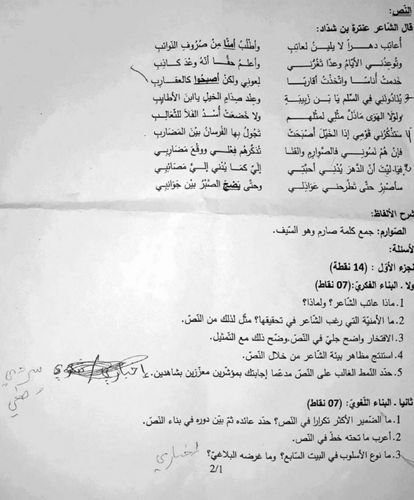 النّص:
قال الشّاعر عنترة بن شدّاد:
أُعاتِب دهـــراً لا يلينُ لعاتِبِ وأطلُبُ أمنًا مِنْ صُروفِ النّوائبِ
وتُوعِدُني الأيّامُ وعدًا تَغُرُّني وأعلمُ حقًّا أنّهُ وعْدُ كاذِبِ
خدمتُ أُناسًا واتّخذتُ أقاربًا لِعوني ولكنْ أصبَحُوا كالعقاربِ
يُنادُونني في السِّلم يا بْن زبيبةٍ وعِند صِدامِ الخيلِ ياابن الأطايبِ
ولوْلا الهوَى ماذلّ مثلي لمثلهم ولا خضعتْ أُسدُ الفلا للثّعالبِ
ستذكُرُني قوْمي إذا الخيْلُ أصبحتْ تجُولُ بها الفُرسانُ بيْنَ المضاربِ
فإنْ همْ نسُوني فالصّوارمُ والقنا تُذكّرهم فِعْلي ووقْعَ مضاربي
فيَا ليْتَ أنّ الدّهرَ يُدْني أحبّتي إليّ كمَا يُدْني إليّ مصائبي
سأصبرُ حتّى تطّرحني عواذلي وحتّى يضجّ الصّبْرُ بيْن جَوانِبي
شرح الألفاظ:
الصّوارم: جمع كلمة صارم وهو السّيف.
الأسئلة:
لجزء الأوّل : (14 نقطة)
ولا . البناء الفكريّ: (07 نقاط)
1. ماذا عاتب الشّاعر؟ ولماذا؟
2. ما الأمنيّة التي رغب الشّاعر في تحقيقها؟ مثّل لذلك من النّصّ.
3. الافتخار واضح جليّ في النّصّ.وضّح ذلك مع التّمثيل.
4. استنتج مظاهر بيئة الشّاعر من خلال النّصّ.
5. حدّد النّمط الغالب على النّصّ مدعّما إجابتك بمؤشّرين معزّزين بشاهدين.
ثانيا . البناء اللّغويّ: (07 نقاط)
1. ما الضّمير الأكثر تكرارا في النّصّ؟ حدّد عائده ثمّ بيّن دوره في بناء النّصّ.
2. أعرب ما تحته خطّ في النّصّ.
3. ما نوع الأسلوب في البيت السّابع؟ وما غرضه البلاغيّ؟
2/1